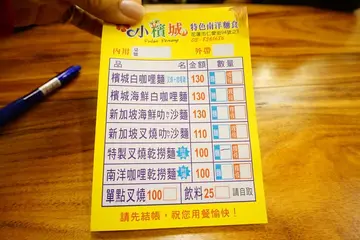 小檳城
特色南洋麵食
內用 外帶
品名 金額 數量
檳城白咖哩麵 130
檳城海鮮咖哩麵 130
新加坡海鮮叻沙麵 130
新加坡叉燒叻沙麵 110
特製叉燒乾撈麵 100
南洋咖哩乾撈麵 100
單點叉燒100 飲料25 請自取
請先結帳，祝您用餐愉快！